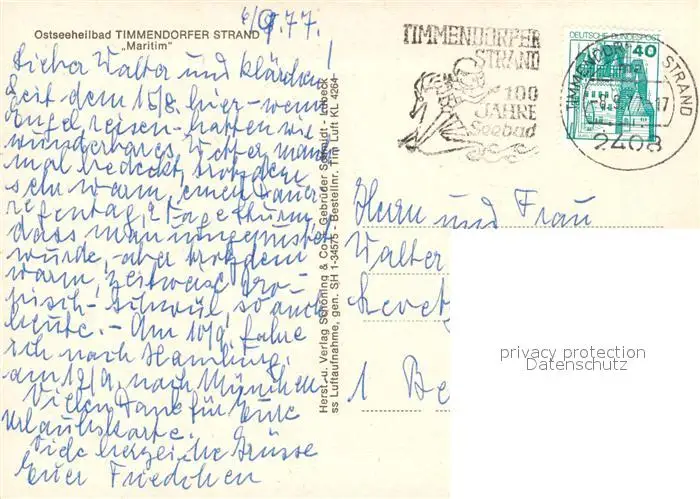 6/9.77.
Ostseeheilbad TIMMENDORFER STRAND
„Maritim"
Lieber Walter und Klärchen!
Seit dem 15/8 hier – wenn
Engel reisen – hatten wir
wunderbares Wetter, man
mal bedeckt, trotzdem
sehr warm, einen Dauer
regentag, 2 Tage Sturm,
dass man umgepustet
wurde, aber trotzdem
warm, zeitweise tro-
pisch-schwül, so auch
heute. – Am 10/9. fahre
ich nach Hamburg.
am 12/9. nach München.
Vielen Dank für Eure
Urlaubskarte.
Viele herzliche Grüsse
Euer Friedchen
Herst. u. Verlag Schöning & Co + Gebrüder Schmidt - Lübeck
ss Luftaufnahme, gen. SH 1-34575 - Bestellnr. Tim Luft KL 4264
TIMMENDORFER
STRAND
100
JAHRE
Seebad
DEUTSCHE BUNDESPOST
40
TIMMENDORFER STRAND
2408
Herrn und Frau
Walter
1 Be
privacy protection
Datenschutz